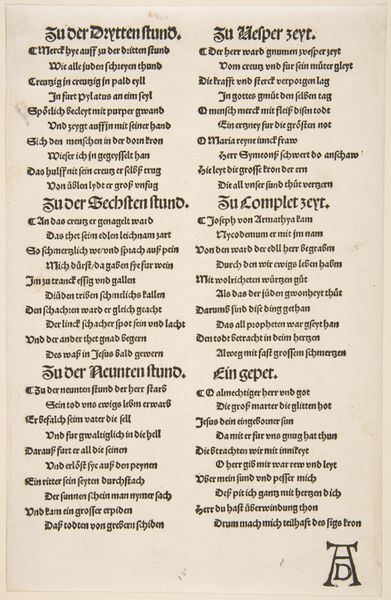 Zu der Drytten stund.
Merck hye auff zu der dritten stund
Wie alle juden schreyen thund
Creutzig in creutzig in pald eyll
In furt Pylatus an eim seyl
Spötlich becleyt mit purper gwand
Vnd zeygt auff jn mit seiner hand
Sich den menschen in der dorn kron
Wie ser ich jn gegeysselt han
Das hulff nit sein creutz er selbs trug
Von üblen lydt er groß vnfug
Zu der Sechsten stund.
An das creutz er genagelt ward
Das thet seim edlen leichnam zart
So schmerzlich we vnd sprach auß pein
Mich dürst da gaben sye fur wein
Im zu tranck essig vnd gallen
Die jüden triben schmelichs kallen
Den schachern ward er gleich geacht
Der linck schacher spot sein vnd lacht
Vnd der ander thet gnad begern
Des waß in Jesus bald gewern
Zu der Neunten stund.
Zu der neunten stund der herr starb
Sein tod vns ewigs lebn erwarb
Er befalch seim vater die sell
Vnd fur gwaltiglich in die hell
Darauß furt er all die seinen
Vnd erlöst sye auß den peynen
Ein ritter sein seyten durchstach
Der sunnen schein man nymer sach
Vnd kam ein grosser erpiden
Daß todten von grebern schiden
Zu Vesper zeyt.
Der herr ward gnumen zvesper zeyt
Vom creutz vnd fur sein müter gleyt
Die krafft vnd sterck verporgen lag
In gottes gmüt den selben tag
O mensch merck mit fleiß disen todt
Ein ertzney fur die grösten not
O Maria reyne junckfraw
Herr Symeonß schwert do anschaw
Hie leyt die grosse kron der ern
Die all vnser sund thüt vertzern
Zu Complet zeyt.
Joseph von Armathya kam
Nycodemum er mit jm nam
Von den ward der edll herr begraben
Durch den wir ewigs leben haben
Mit wolricheten würtzen güt
Als das der jüden gwonheyt thüt
Darumb sind dise ding gethan
Das all propheten war gseyt han
Den todt betracht in deim hertzen
Allweg mit fast grossem schmertzen
Ein gepet.
O almechtiger herr vnd got
Die groß marter die glitten hot
Jesus dein eingeborner sun
Da mit er fur vns gnug hat thun
Die btrachten wir mit innikeyt
O herr gib mir war rew vnd leyt
Vber mein sund vnd pesser mich
Deß pit ich gantz mit hertzen dich
Herr du hast überwindung thon
Drum mach mich teilhaft des sigs kron
AD